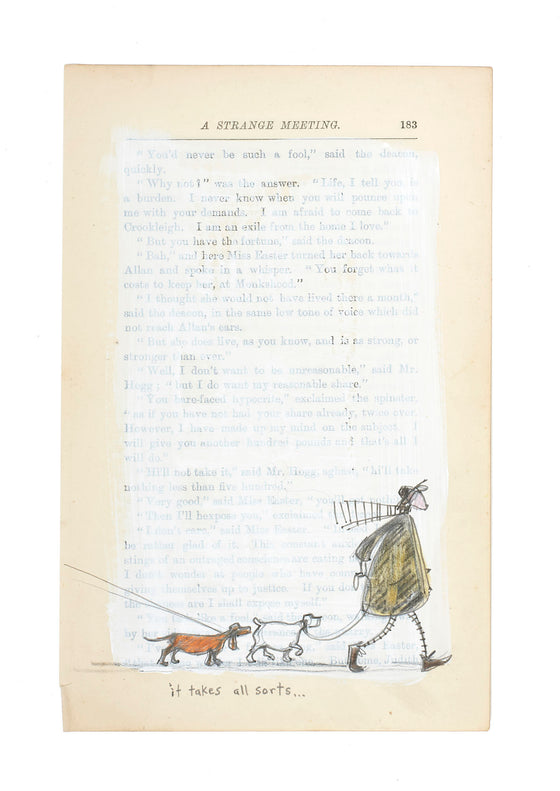 A STRANGE MEETING. 183
"You'd never be such a fool," said the deacon,
quickly.
"Why not?" was the answer. "Life, I tell you, is
a burden. I never know when you will pounce upon
me with your demands. I am afraid to come back to
Crookleigh. I am an exile from the home I love."
"But you have the fortune," said the deacon.
"Bah," and here Miss Easter turned her back towards
Allan and spoke in a whisper. "You forget what it
costs to keep her, at Monkshood."
"I thought she would not have lived there a month,"
said the deacon, in the same low tone of voice which did
not reach Allan's ears.
"But she does live, as you know, and is as strong, or
stronger than ever."
"Well, I don't want to be unreasonable," said Mr.
Hogg; "but I do want my reasonable share."
"You bare-faced hypocrite," exclaimed the spinster,
"as if you have not had your share already, twice over.
However, I have made up my mind on the subject. I
will give you another hundred pounds and that's all I
will do."
"Hi'll not take it," said Mr. Hogg, aghast, "hi'll take
nothing less than five hundred."
"Very good," said Miss Easter, "you'll get
"Then I'll hexpose you," exclaimed
"I don't care," said Miss Easter.
be rather glad of it. This constant
stings of an outraged conscience are eating
I don't wonder at people who have
giving themselves up to justice. If you
are I shall expose myself."
it takes all sorts...